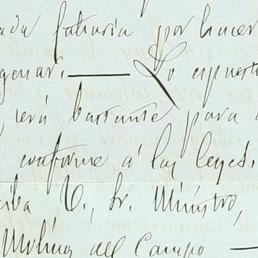 ada falsaria por hacer
genar. — Lo expuesto
será bastante para
conforme a las leyes.
iba V., Sr. Ministro,
Molina del Campo —